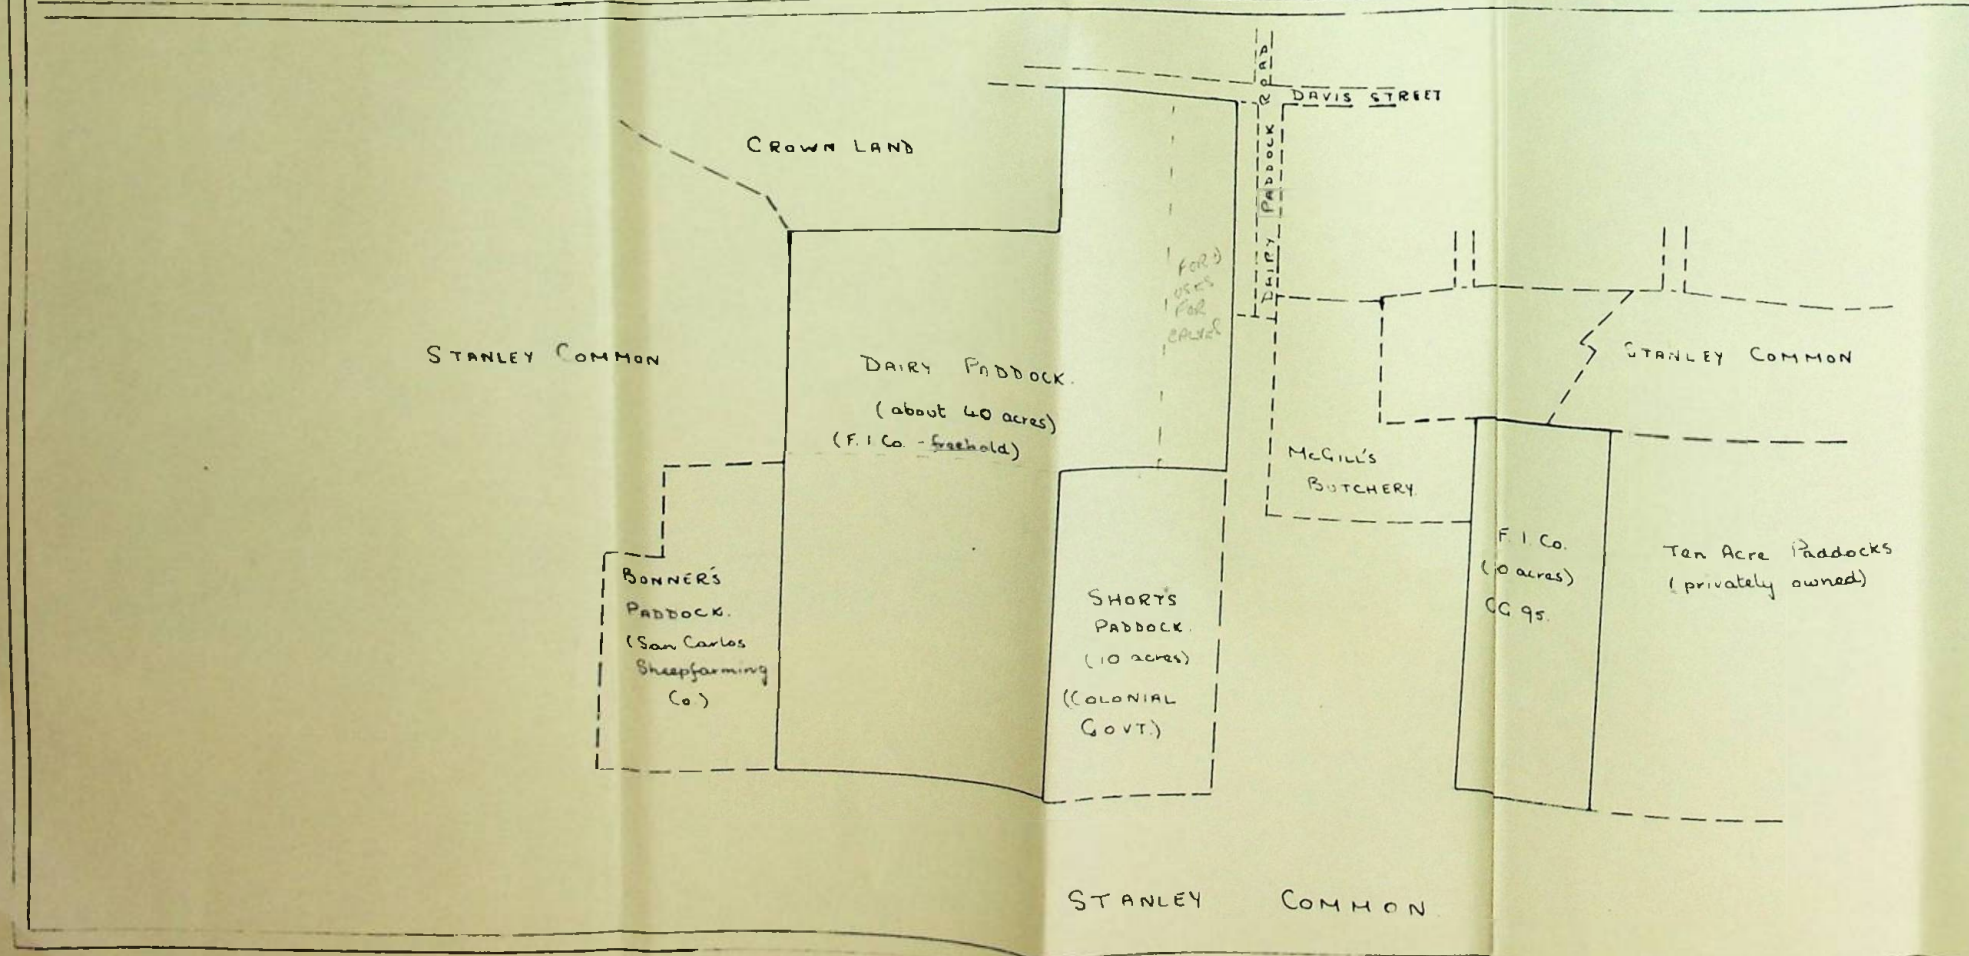 DAIRY PADDOCK ROAD
DAVIS STREET
CROWN LAND
FORD
USES
FOR
CALVES
STANLEY COMMON
DAIRY PADDOCK.
(about 40 acres)
(F. I Co. - freehold)
STANLEY COMMON
McGILL'S
BUTCHERY.
BONNER'S
PADDOCK.
(San Carlos
Sheepfarming
Co.)
SHORT'S
PADDOCK.
(10 acres)
(COLONIAL
GOVT.)
F. I. Co.
(10 acres)
CG 95.
Ten Acre Paddocks
(privately owned)
STANLEY COMMON